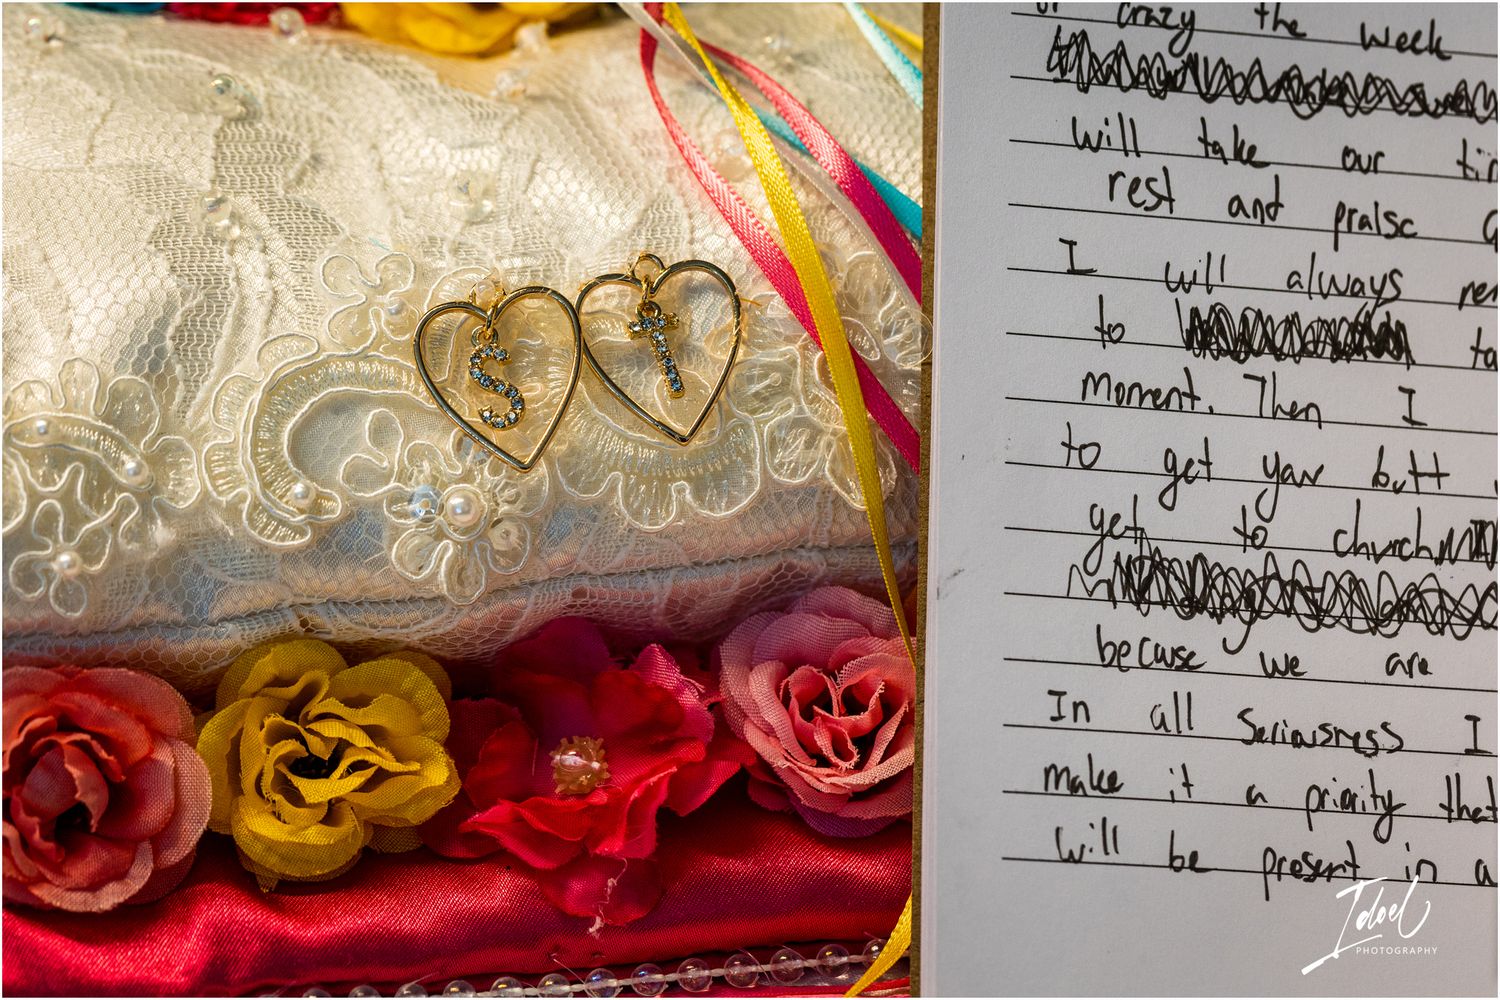 S T
or crazy the week
will take our tim
rest and praise G
I will always rem
to ta
moment. Then I
to get your butt
get to church
because we are
In all seriousness I
make it a priority that
will be present in a
Idoel
PHOTOGRAPHY